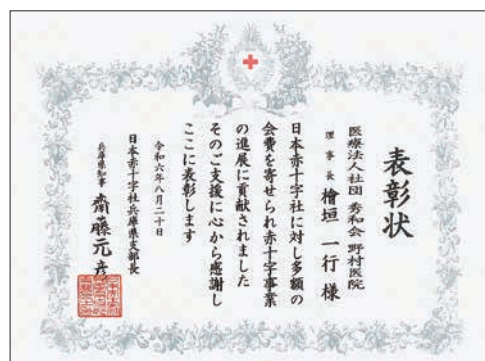 表彰状
医療法人社団 秀和会 野村医院
理事長 檜垣 一行 様
日本赤十字社に対し多額の
会費を寄せられ赤十字事業
の進展に貢献されました
そのご支援に心から感謝し
ここに表彰します
令和六年八月二十日
日本赤十字社兵庫県支部長
兵庫県知事 齋藤元彦